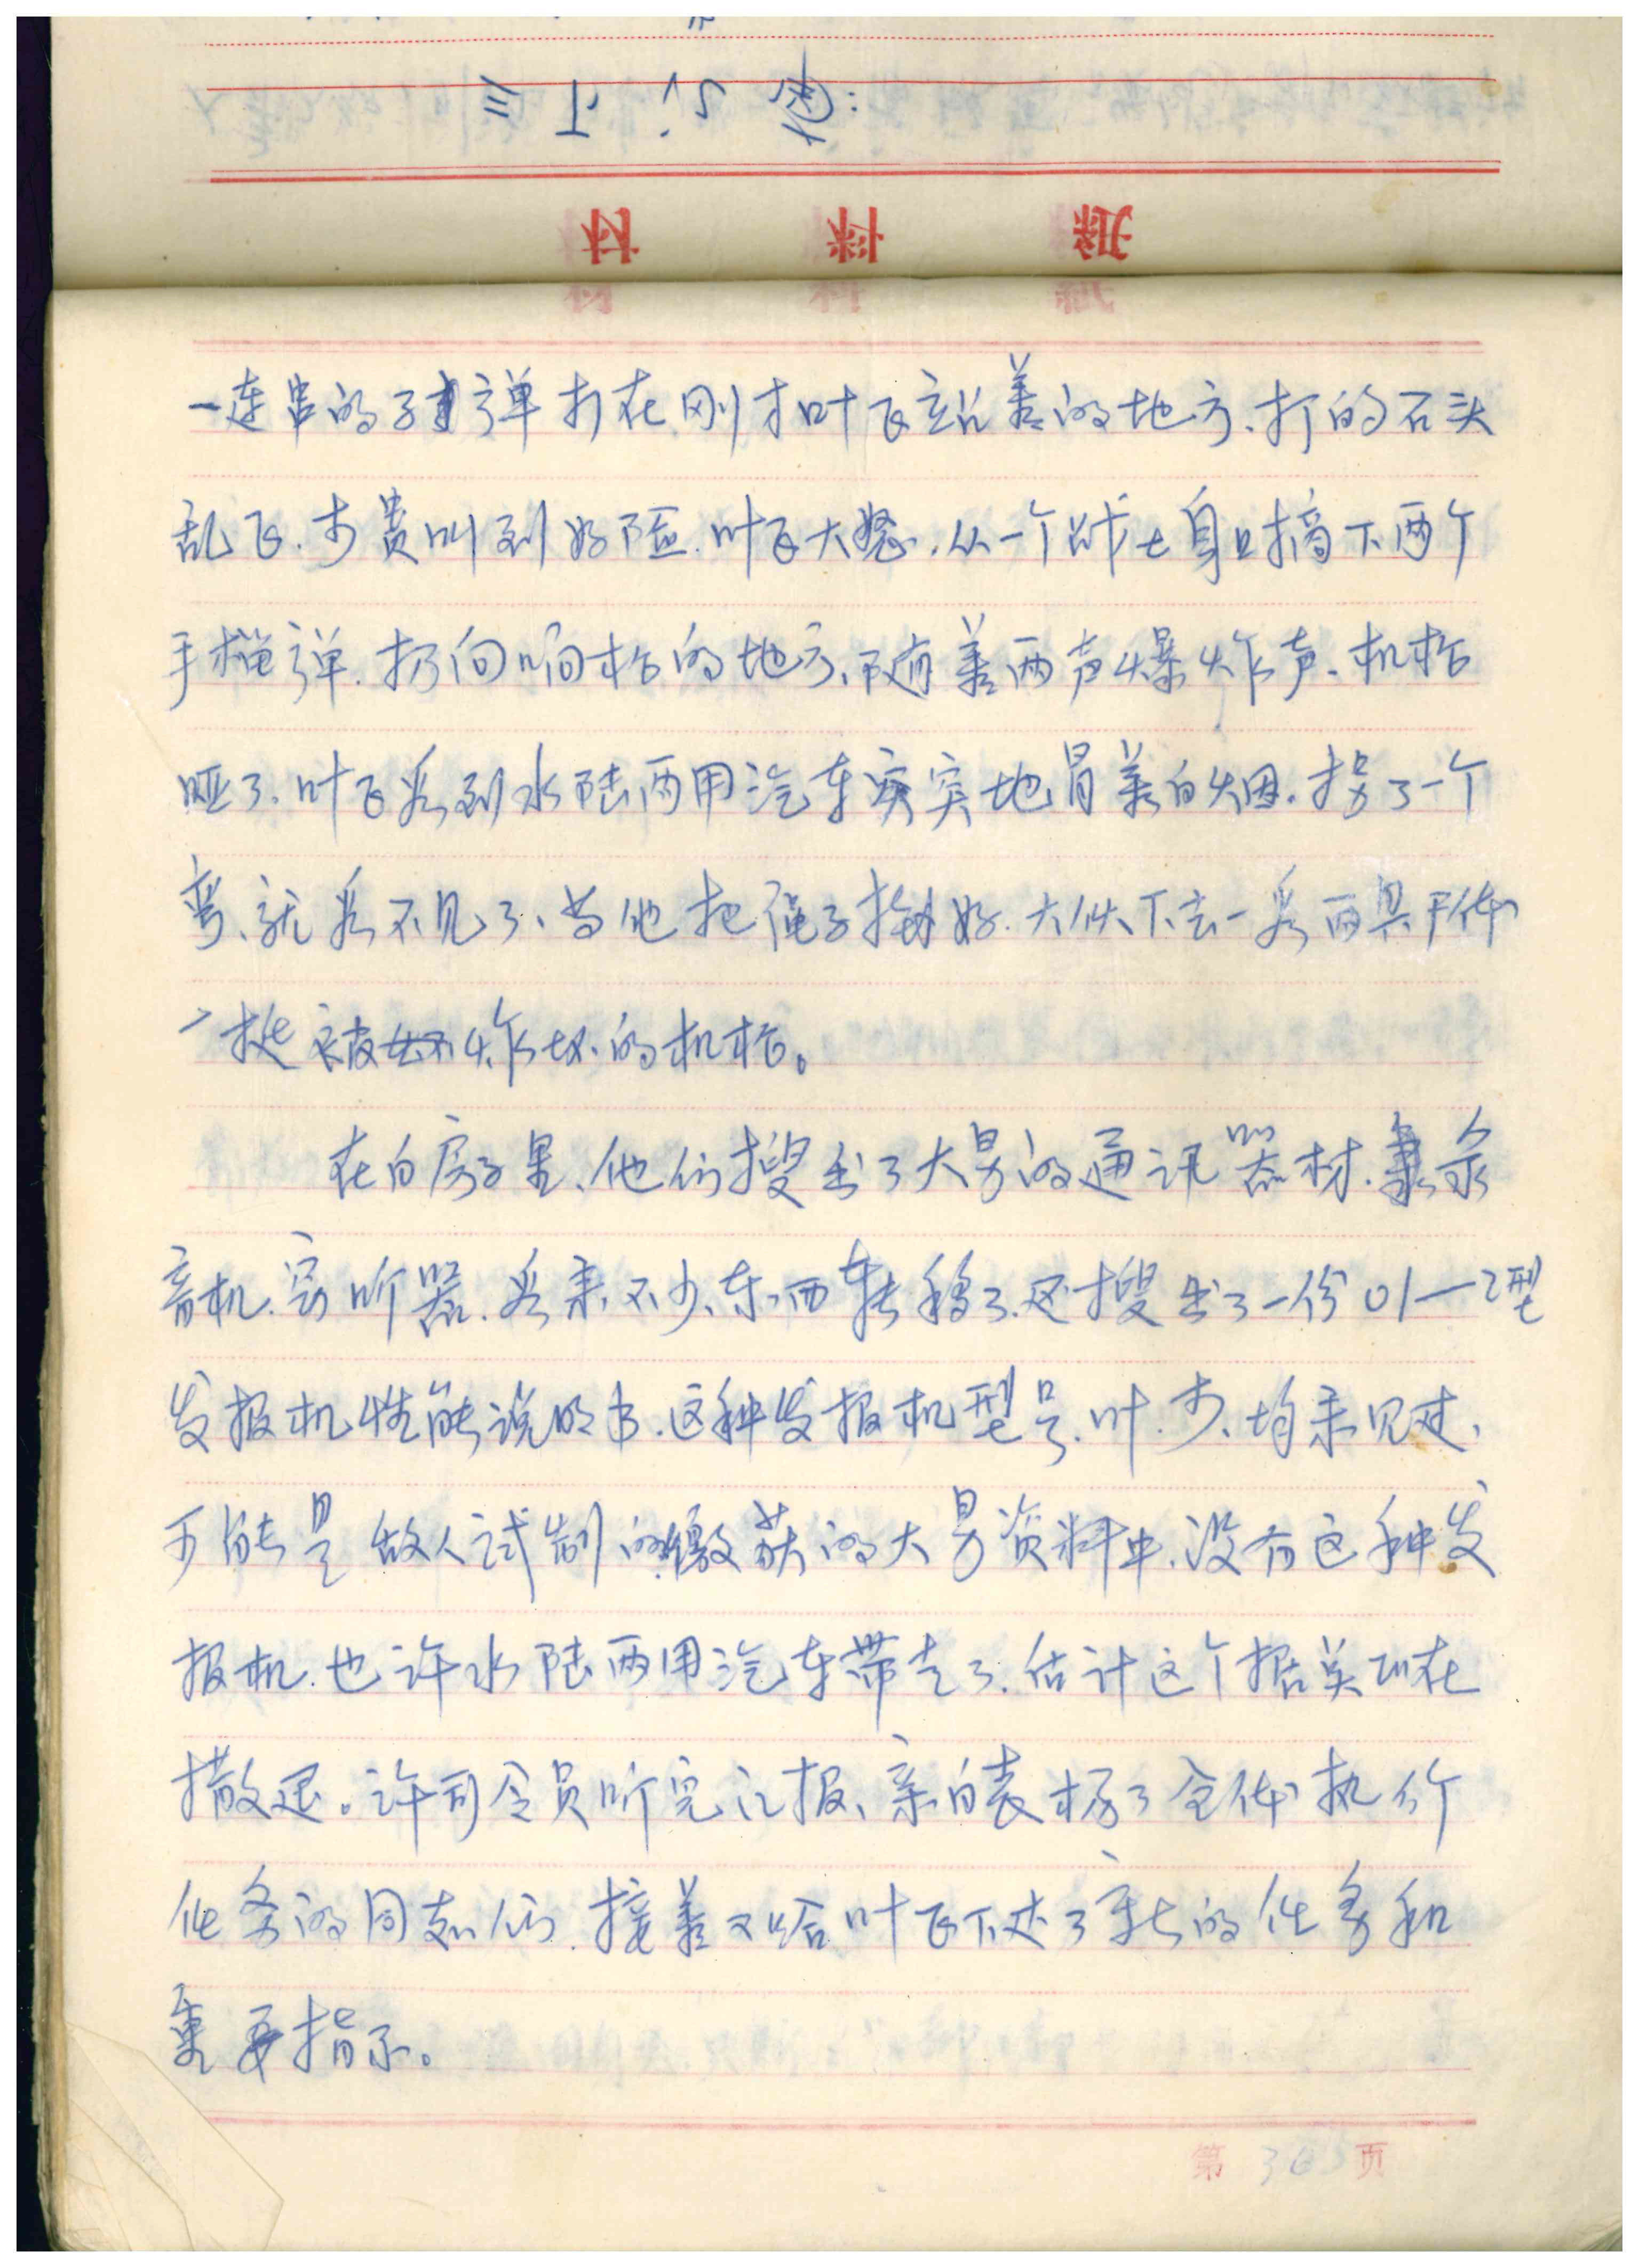 材料纸
一连串的子弹打在刚才叶飞站着的地方、打的石头
乱飞.步贵叫到好险.叶飞大怒.从一个战士身上摘下两个
手榴弹.扔向响枪的地方、随着两声爆炸声、机枪
哑了.叶飞看到水陆两用汽车突突地冒着白烟.拐了一个
弯、就看不见了、当他把绳子拴好.大伙下去一看两具尸体
一挺被炸坏的机枪。
在白房子里、他们搜出了大量的通讯器材.录
音机.窃听器.看来不少东西转移了.还搜出了一份01—2型
发报机性能说明书.这种发报机型号.叶.步、均未见过、
可能是敌人试制的缴获的大量资料中.没有这种发
报机.也许水陆两用汽车带走了.估计这个据点现在
撤退。许司令员听完汇报、亲自表扬了全体执行
任务的同志们.接着又给叶飞下达了新的任务和
重要指示。
第 363 页